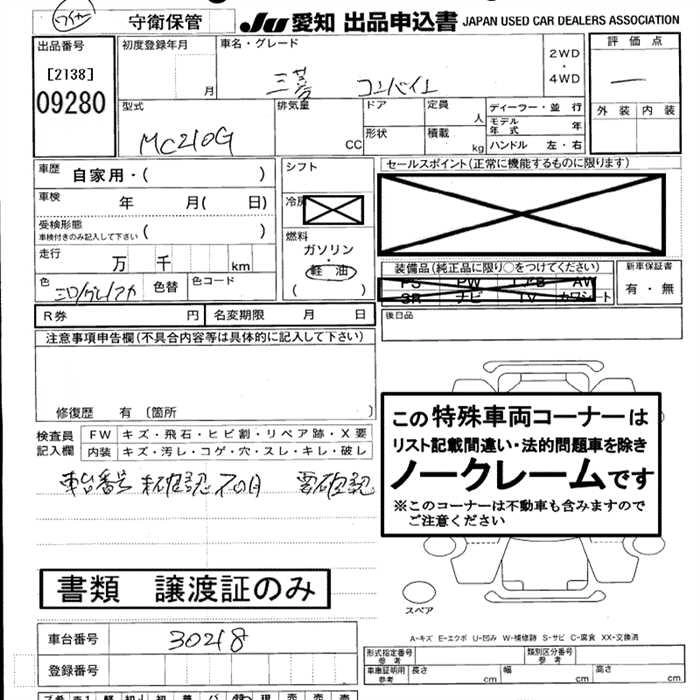 守衛保管
JU 愛知 出品申込書 JAPAN USED CAR DEALERS ASSOCIATION
出品番号
[2138]
09280
初度登録年月
月
車名・グレード
三菱 コンバイン
2WD
・
4WD
評価点
外装 内装
型式
MC210G
排気量
CC
ドア
形状
定員
人
積載
kg
ディーラー・並行
モデル年式
年
ハンドル 左・右
車歴
自家用・( )
車検
年 月( 日)
受検形態
車検付きのみ記入して下さい
( )
走行
万 千 km
色
色替
色コード
シフト
冷房
燃料
ガソリン・
軽油
( )
セールスポイント(正常に機能するものに限ります)
装備品(純正品に限り○をつけてください)
PS PW エアB AW
SR ナビ TV カワシート
新車保証書
有・無
R券 円
名変期限 月 日
後日品
注意事項申告欄(不具合内容等は具体的に記入して下さい)
修復歴 有 〔箇所 〕
検査員
記入欄
FW キズ・飛石・ヒビ割・リペア跡・X要
内装 キズ・汚レ・コゲ・穴・スレ・キレ・破レ
車台番号 未確認 不明 要確認
この特殊車両コーナーは
リスト記載間違い・法的問題車を除き
ノークレームです
※このコーナーは不動車も含みますので
ご注意ください
書類 譲渡証のみ
スペア
A-キズ E-エクボ U-凹み W-補修跡 S-サビ C-腐食 XX-交換済
車台番号
30218
登録番号
形式指定番号
参考
類別区分番号
参考
車庫証明用
参考
長さ cm
幅 cm
高さ cm